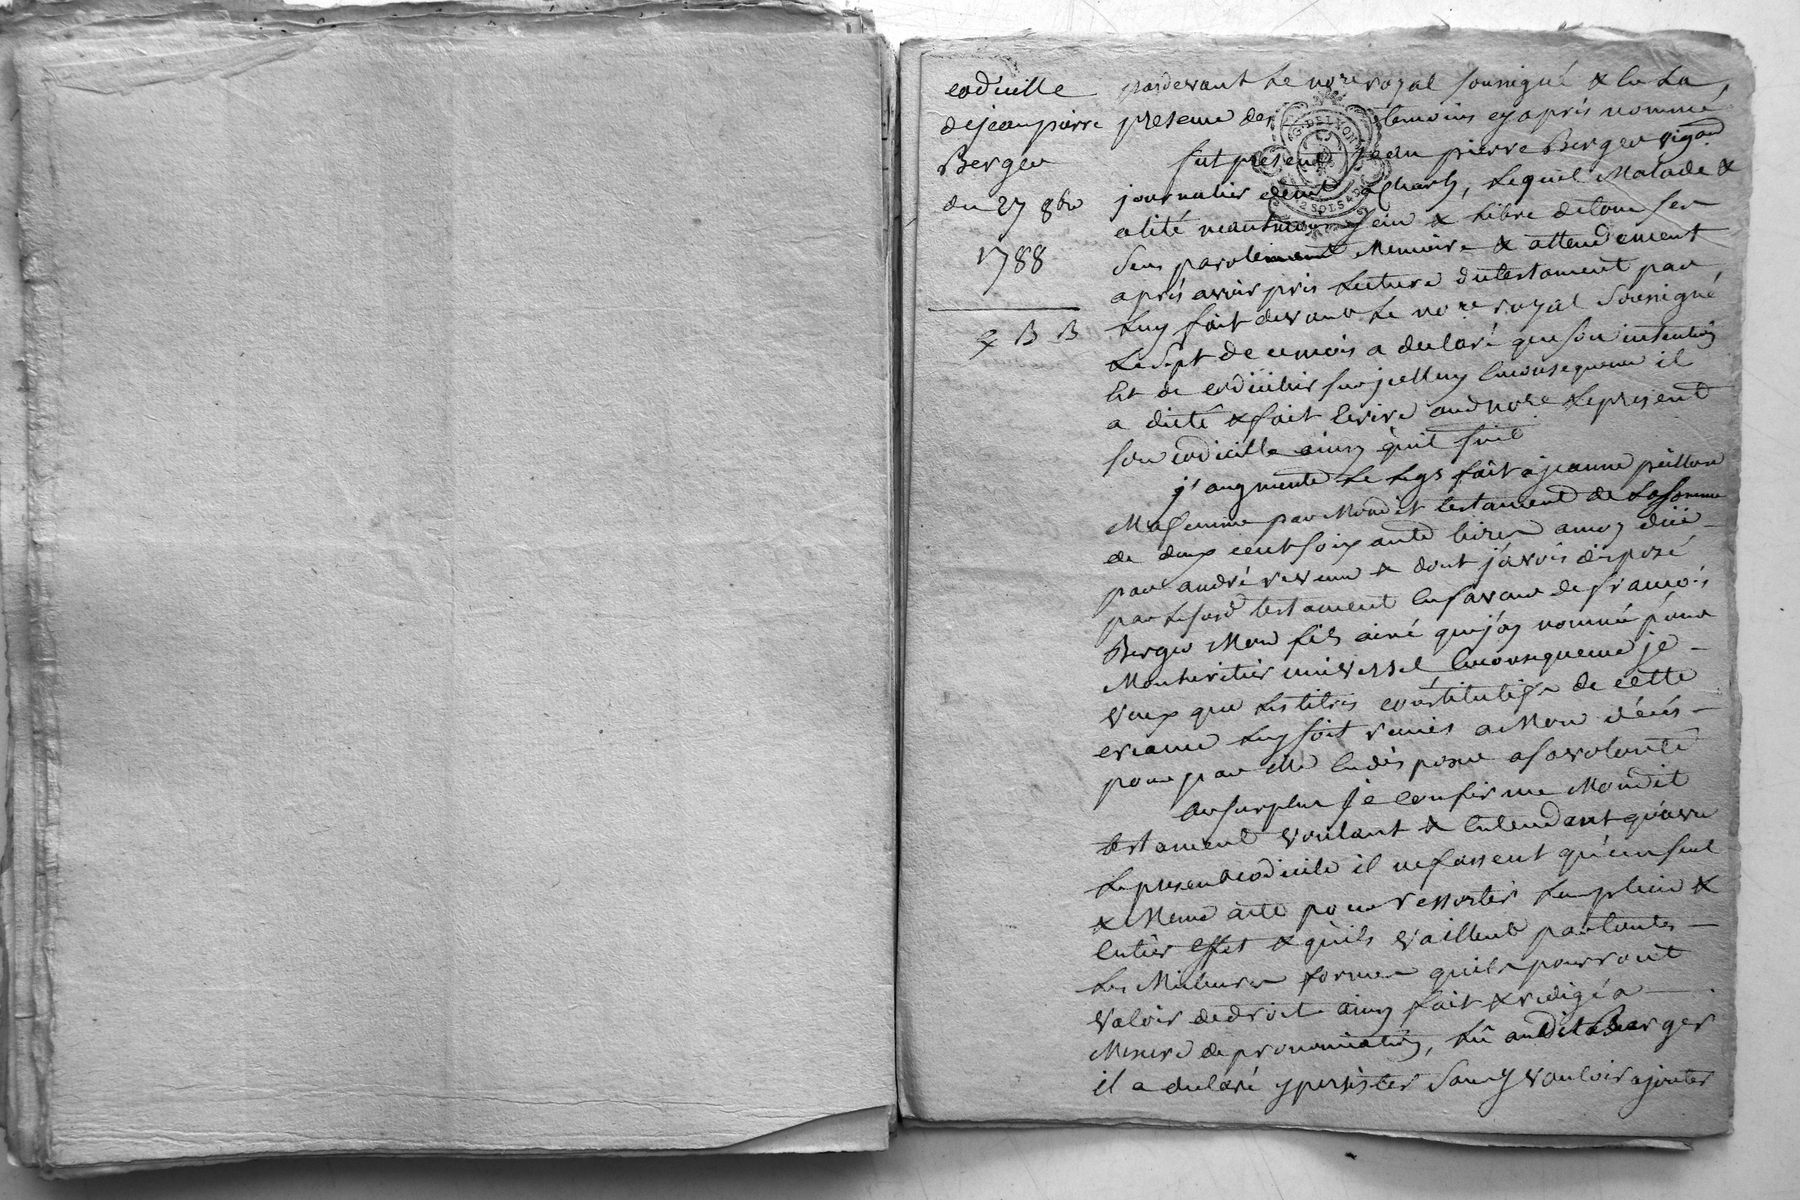 codicille
de jean pierre
Berger
du 27 9bre
1788
B B
pardevant Le nore royal soussigné & en La
presence des temoins cy après nommé
fut present Jean pierre Berger vigon
journalier demt a Charly, Lequel Malade &
alité neantmoins sain & Libre de tous ses
sens parole Memoire & attendement
après avoir pris Lecture du testament par
Luy fait devant Le nore royal soussigné
Le sept de ce mois a declaré que son intention
Est de codiciler sur jcelluy Enconsequence il
a dicté & fait Ecrire audnore Le present
son codicille ainsy quil suit
j'augmente Le Legs fait a jeanne
Ma femme par Mondit testament de La somme
de deux cent soixante livres a moy düe
par andré revenu & dont j'avois disposé
par Lesusd testament En faveur de françois
Berger Mon fils ainé que j'ay nommé pour
Mon heritier universel Enconsequence je
veux que Les titres constitutifs de cette
creance Luy soit remis a Mon décés
pour par Elle En disposer a sa volonté
Au surplus Je Confirme Mondit
testament voulant & Entendant qu'avec
Le present codicile il ne fassent qu'un seul
& Meme acte pour ressortir Leur plein &
Entier Effet & qu'ils vaillent par toutes
Les Meilleures formes quils pourront
valoir de droit ainsy fait & redigé a
Mesure de prononciation, Lû audit Berger
il a declaré y persister sans y vouloir ajouter
G. DE LYON
2 SOLS